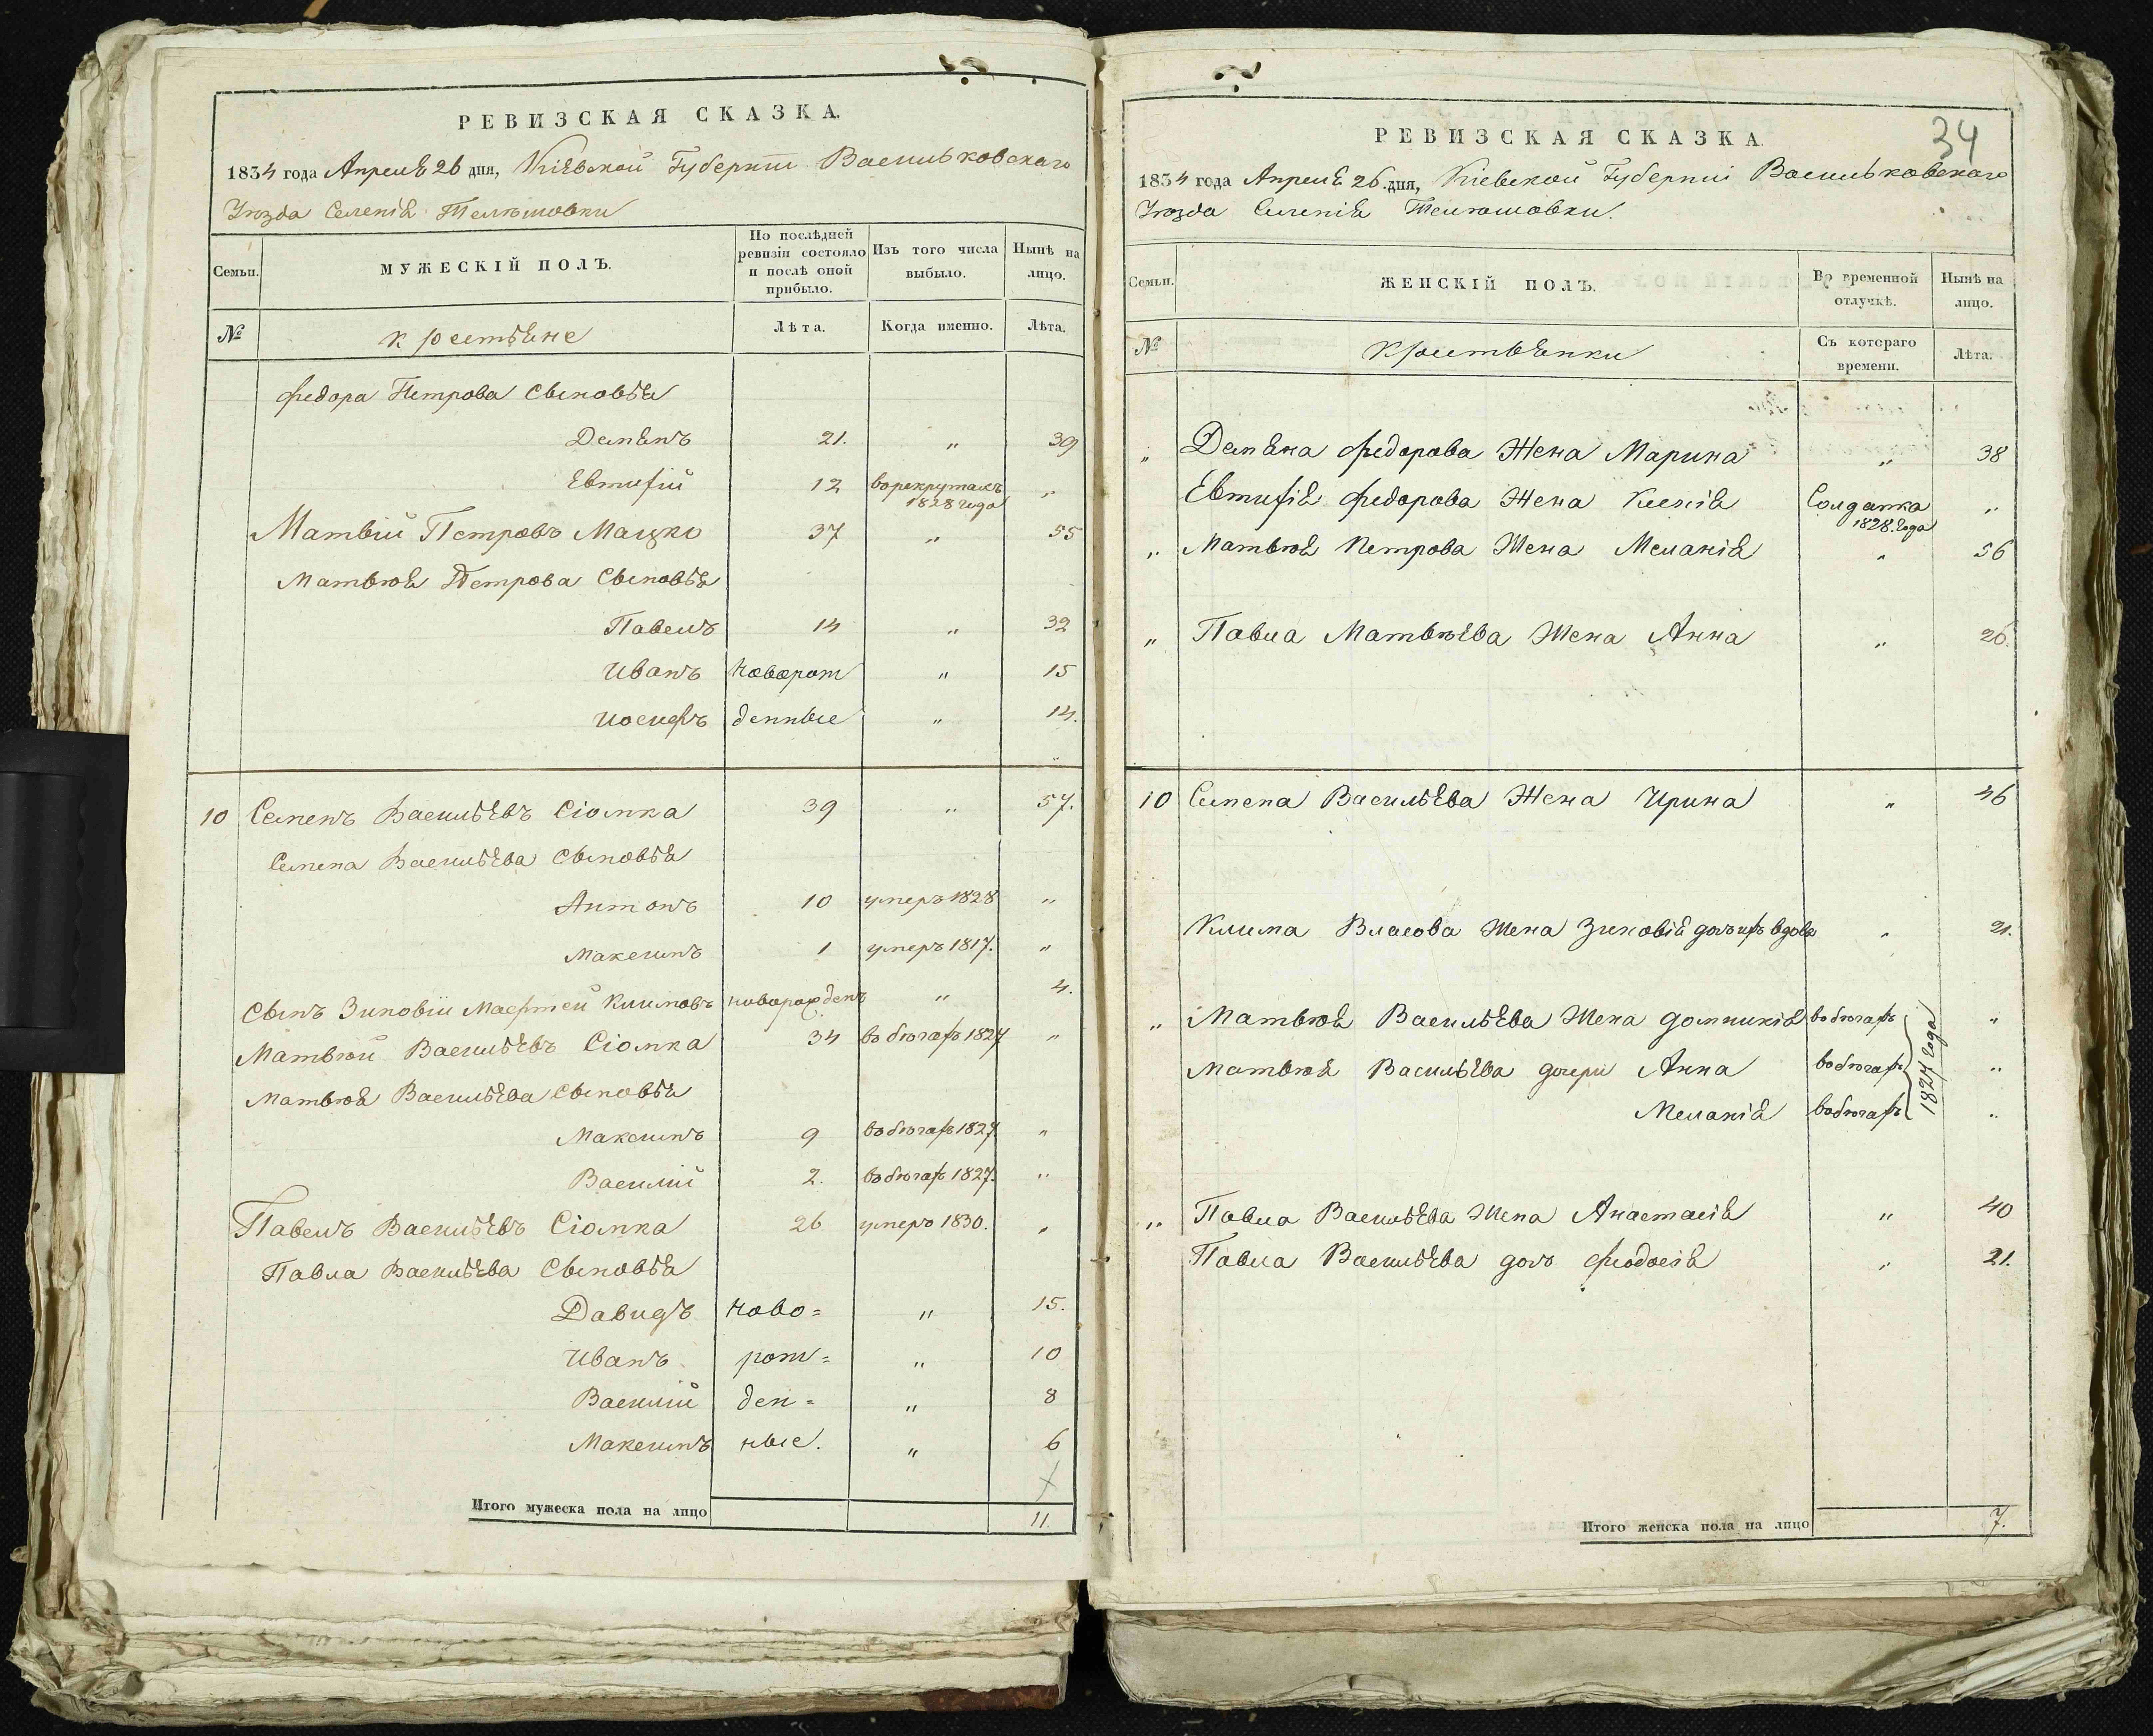 РЕВИЗСКАЯ СКАЗКА.
1834 года Апреля 26 дня, Кіевской Губерніи Васильковскаго
Уезда Селенія Телешовки
Семьи.
МУЖЕСКІЙ ПОЛЪ.
По послѣдней ревизіи состояло и послѣ оной прибыло.
Изъ того числа выбыло.
Нынѣ на лицо.
№
крестьяне
Лѣта.
Когда именно.
Лѣта.
Федора Петрова Сыновья
Демянъ 21. " 39
Евтифій 12 въ рекрутахъ 1828 года "
Матвій Петровъ Мацко 37 " 55
Матвея Петрова Сыновья
Павелъ 14 " 32
Иванъ новорож " 15
Иосифъ денные " 14.
10 Семенъ Васильевъ Сіомка 39 " 57.
Семена Васильева Сыновья
Антонъ 10 умеръ 1828 "
Максимъ 1 умеръ 1817. "
Сынъ Зиновіи Климовъ новорожденъ " 4.
Матвей Васильевъ Сіомка 34 въ бегахъ 1827 "
Матвея Васильева Сыновья
Максимъ 9 въ бегахъ 1827 "
Василій 2. въ бегахъ 1827. "
Павелъ Васильевъ Сіомка 26 умеръ 1830. "
Павла Васильева Сыновья
Давидъ ново= " 15.
Иванъ рож= " 10
Василій ден= " 8
Максимъ ные. " 6
Итого мужеска пола на лицо 11.
34
РЕВИЗСКАЯ СКАЗКА.
1834 года Апреля 26 дня, Кіевской Губерніи Васильковскаго
Уезда Селенія Телешовки.
Семьи.
ЖЕНСКІЙ ПОЛЪ.
Во временной отлучкѣ.
Нынѣ на лицо.
№
Крестьянки
Съ котораго времени.
Лѣта.
" Демяна Федорова Жена Марина " 38
Евтифія Федорова Жена Ксенія Солдатка 1828. года "
" Матвея Петрова Жена Меланія " 56
" Павла Матвеева Жена Анна " 26.
10 Семена Васильева Жена Ирина " 46
Клима Власова Жена Зиновія вдова " 21.
" Матвея Васильева Жена Домникія въ бегахъ "
Матвея Васильева дочери Анна въ бегахъ 1827 года "
Меланія въ бегахъ "
" Павла Васильева Жена Анастасія " 40
Павла Васильева дочь Феодосія " 21.
Итого женска пола на лицо 7.